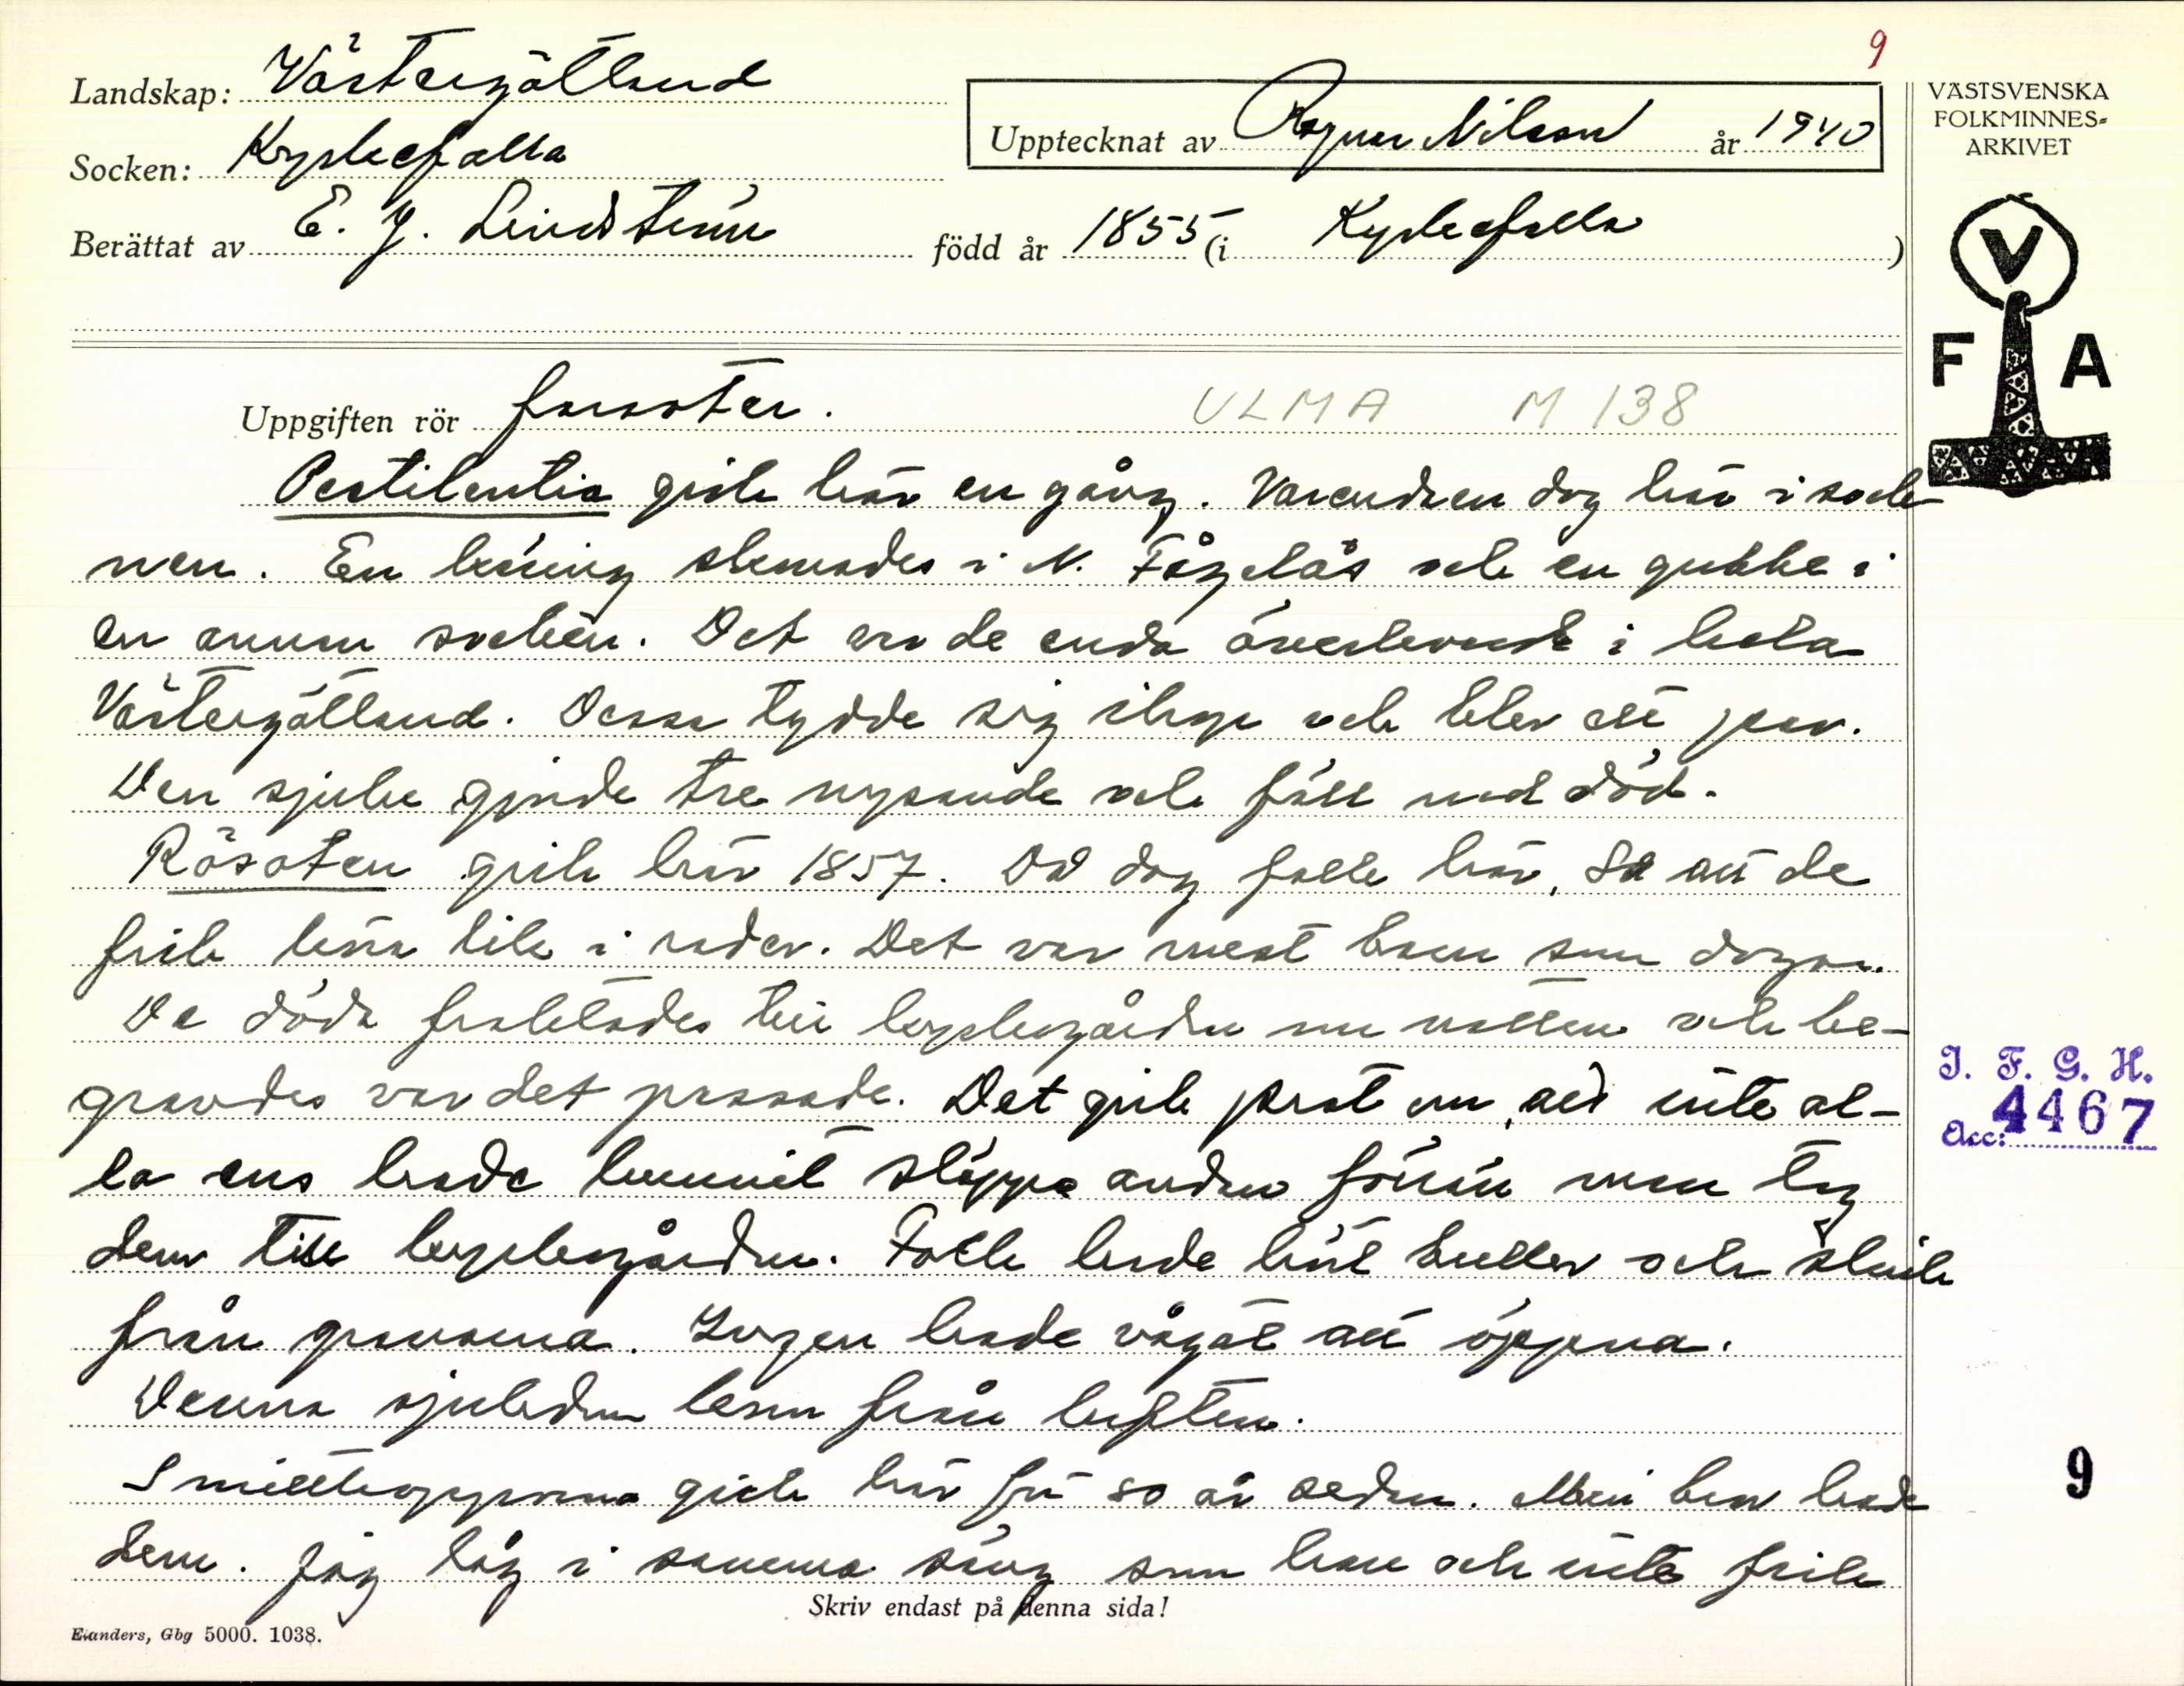 9
Landskap: Västergötland
Socken: Kyrkefalla
Upptecknat av Ragnar Nilsson år 1940
Berättat av E. J. Lindstein född år 1855 (i Kyrkefalla)
VÄSTSVENSKA
FOLKMINNES=
ARKIVET
V
F A
Uppgiften rör farsoter.
ULMA M 138
Pestilentia gick här en gång. Varendsen dog här i sock-
nen. En kvinna i N. Fågelås och en gubbe i
en annan socken. Det var de enda överlevande i hela
Västergötland. Dessa tydde sig ihop och blev ett par.
Den sjuke gjorde tre nysande och föll ned död.
Rösoten gick här 1857. Då dog folk här, så att de
fick bära lik i rader. Det var mest barn som dogo.
De döda fraktades till kyrkogården om natten och be-
gravdes var det passade. Det gick prat om, att inte al-
la ens hade hunnit släppa anden förrän man tog
dem till kyrkogården. Folk hade hört buller och skrik
från gravarna. Ingen hade vågat att öppna.
Denna sjukdom kom från luften.
Smittkopporna gick här för 80 år sedan. Min bror hade
dem. Jag låg i samma säng som han och inte fick
I. F. G. H.
Acc: 4467
9
Skriv endast på denna sida!
Elanders, Gbg 5000. 1038.